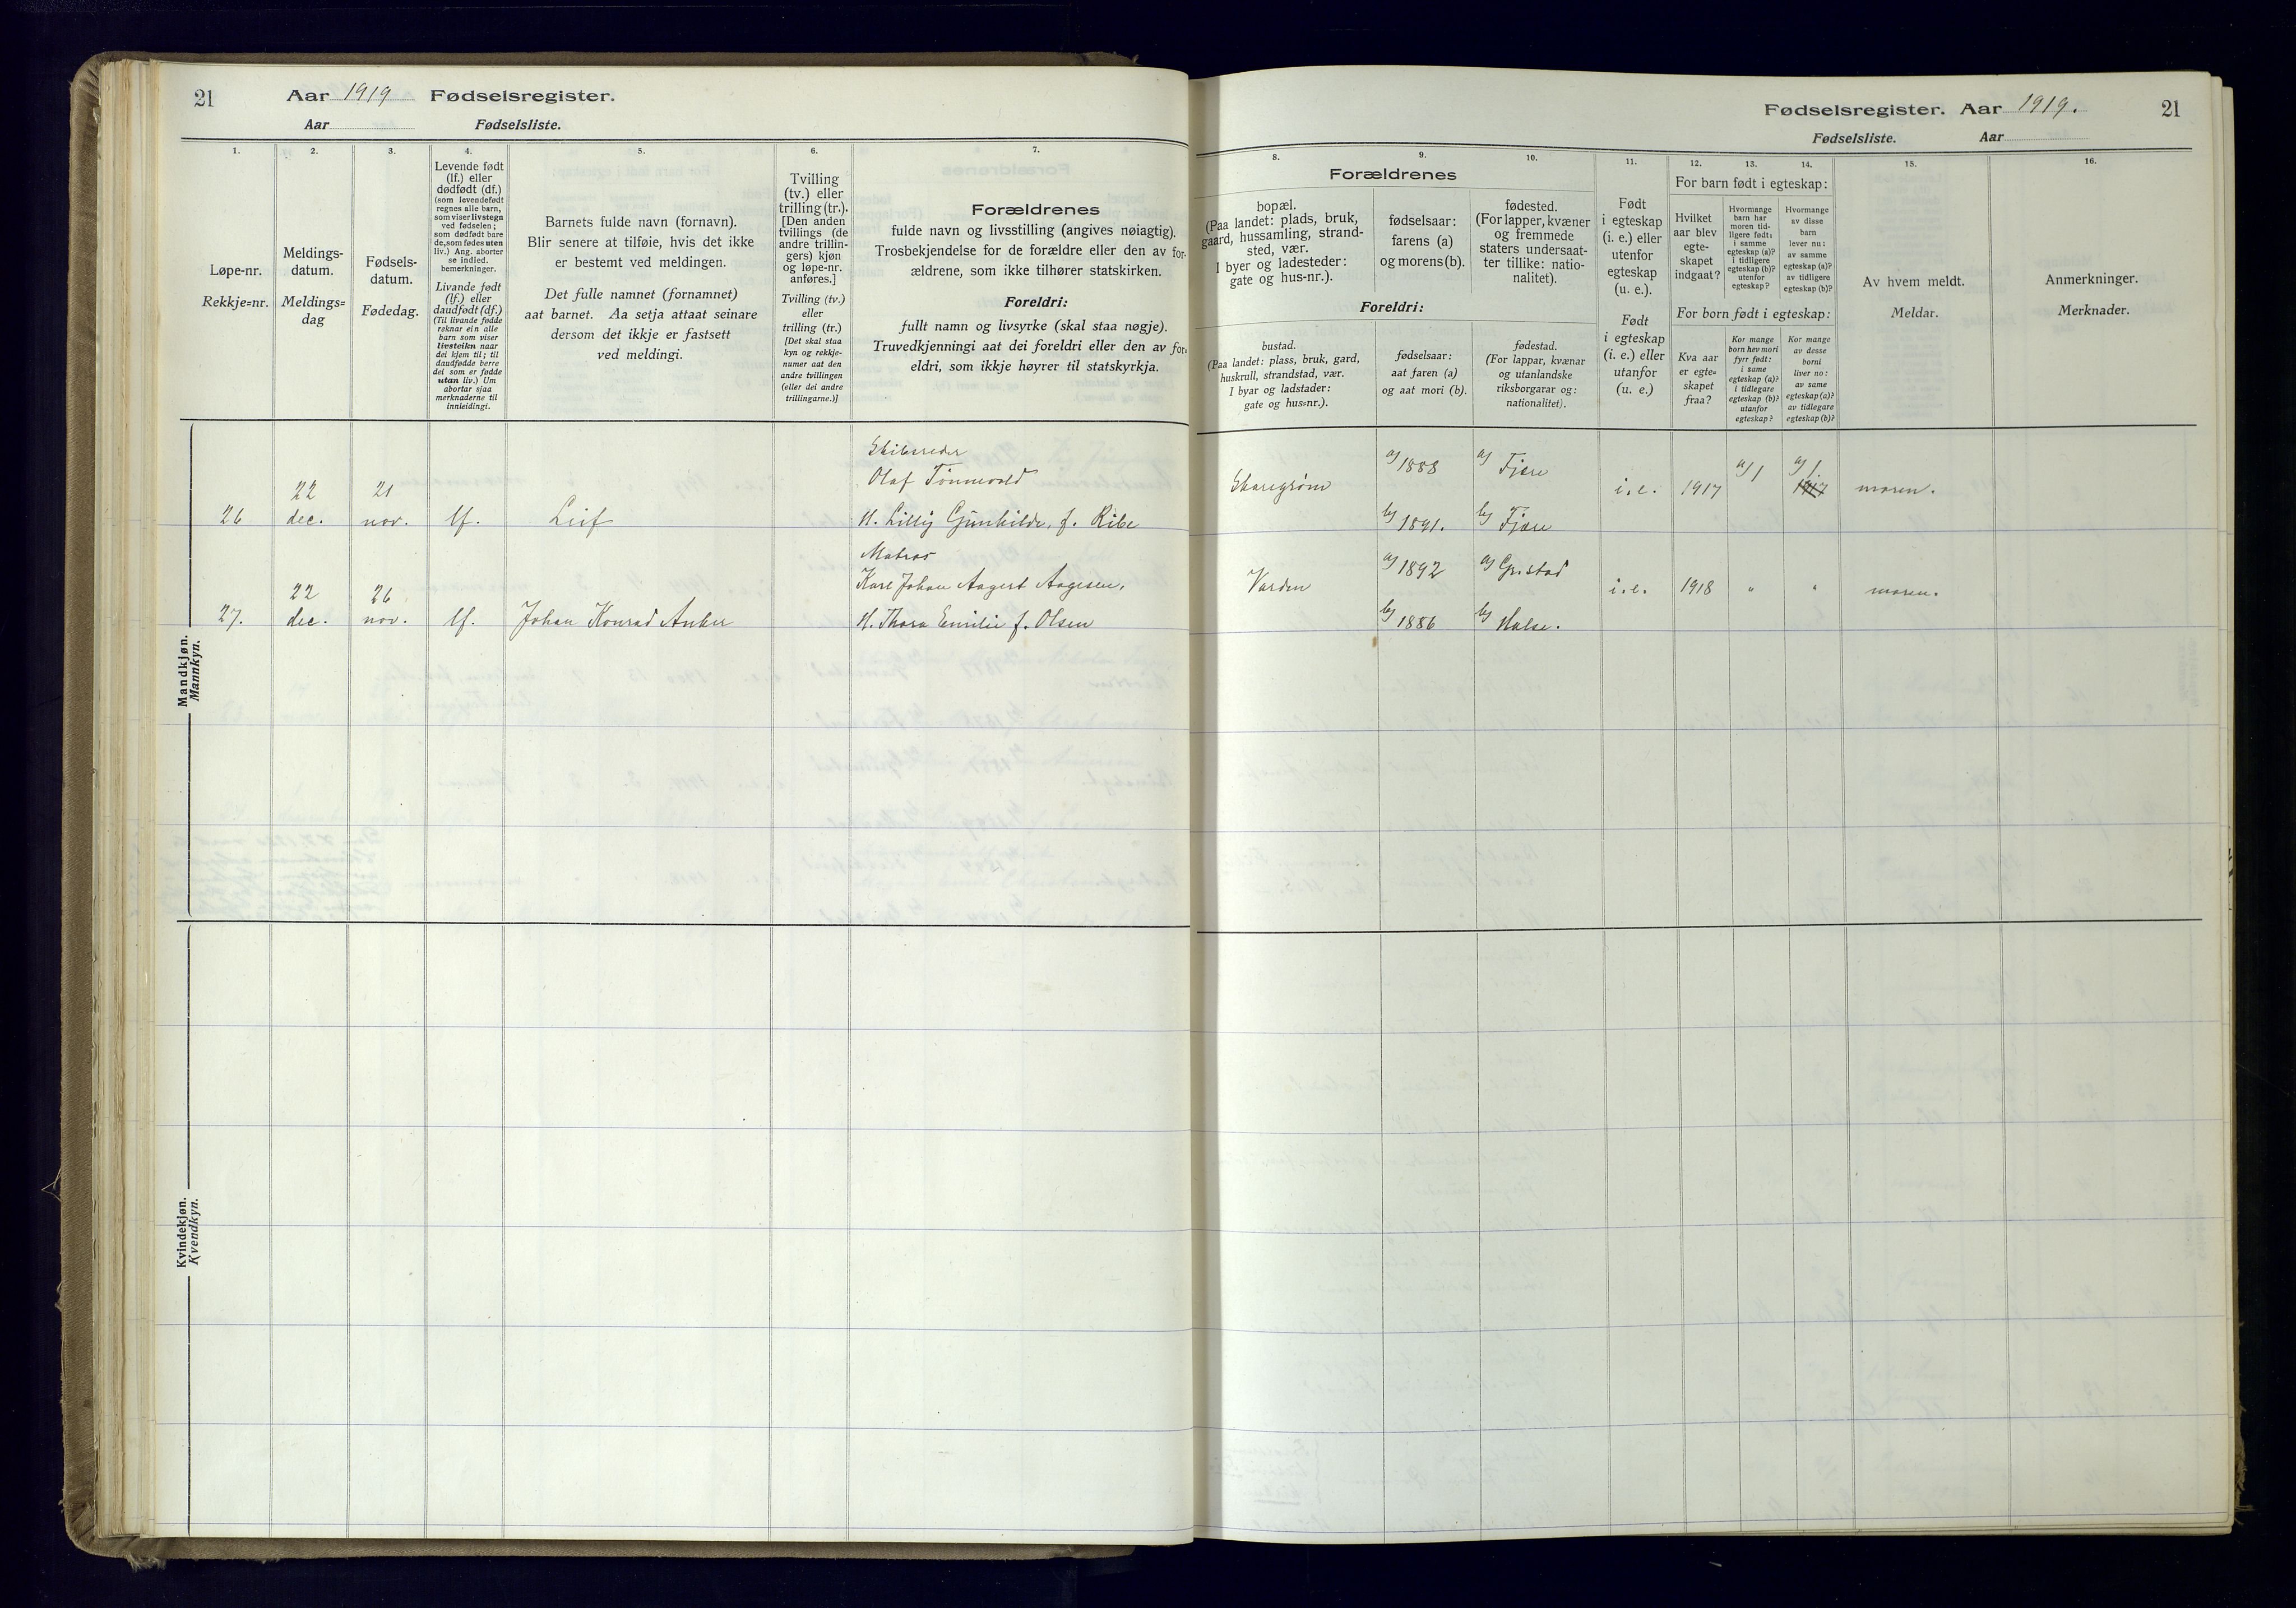 21
Aar 1919 Fødselsregister.
Aar Fødselsliste.
1.
2.
3.
4.
5.
6.
7.
Løpe-nr.
Rekkje=nr.
Meldings-
datum.
Meldings=
dag
Fødsels-
datum.
Fødedag.
Levende født
(lf.) eller
dødfødt (df.)
(som levendefødt
regnes alle barn,
som viser livstegn
ved fødselen;
som dødfødt bare
de, som fødes uten
liv.) Ang. aborter
se indled.
bemerkninger.
Livande født
(lf.) eller
daudfødt (df.)
(Til livande fødde
reknar ein alle
barn som viser
livsteikn naar
dei kjem til; til
daudfødde berre
dei som er fødde
utan liv.) Um
abortar sjaa
merknaderne til
innleidingi.
Barnets fulde navn (fornavn).
Blir senere at tilføie, hvis det ikke
er bestemt ved meldingen.
Det fulle namnet (fornamnet)
aat barnet. Aa setja attaat seinare
dersom det ikkje er fastsett
ved meldingi.
Tvilling
(tv.) eller
trilling (tr.).
[Den anden
tvillings (de
andre trillin-
gers) kjøn
og løpe-nr.
anføres.]
Tvilling (tv.)
eller
trilling (tr.)
[Det skal staa
kyn og rekkje-
numer aat den
andre tvillingen
(eller dei andre
trillingarne.)]
Forældrenes
fulde navn og livsstilling (angives nøiagtig).
Trosbekjendelse for de forældre eller den av for-
ældrene, som ikke tilhører statskirken.
Foreldri:
fullt namn og livsyrke (skal staa nøgje).
Truvedkjenningi aat dei foreldri eller den av for-
eldri, som ikkje høyrer til statskyrkja.
Mandkjøn.
Mannkyn.
26
22
dec.
21
nov.
lf.
Leif
Skibsreder
Olaf Tönnevold
H. Lilly Gunhilde, f. Ribe
27.
22
dec.
26
nov.
lf.
Johan Konrad Anker
Matros
Karl Johan Aagert Aagesen,
H. Thora Emilie f. Olsen
Kvindekjøn.
Kvendkyn.
Fødselsregister. Aar 1919. 21
Fødselsliste. Aar
8.
9.
10.
11.
12.
13.
14.
15.
16.
Forældrenes
bopæl.
(Paa landet: plads, bruk,
gaard, hussamling, strand-
sted, vær.
I byer og ladesteder:
gate og hus-nr.).
fødselsaar:
farens (a)
og morens (b).
fødested.
(For lapper, kvæner
og fremmede
staters undersaat-
ter tillike: natio-
nalitet).
Foreldri:
bustad.
(Paa landet: plass, bruk, gard,
huskrull, strandstad, vær.
I byar og ladstader:
gate og hus=nr.).
fødselsaar:
aat faren (a)
og aat mori (b).
fødestad.
(For lappar, kvænar
og utanlandske
riksborgarar og:
nationalitet).
Født
i egteskap
(i. e.) eller
utenfor
egteskap
(u. e.).
Født
i egteskap
(i. e.) eller
utanfor
(u. e.)
For barn født i egteskap:
Hvilket
aar blev
egte-
skapet
indgaat?
Hvormange
barn har
moren tid-
ligere født:
i samme
egteskap (a)?
i tidligere
egteskap (b)?
utenfor
egteskap?
Hvormange
av disse
barn
lever nu:
av samme
egteskap (a)?
av tidligere
egteskap (b)?
For born født i egteskap:
Kva aar
er egte-
skapet
fraa?
Kor mange
born hev mori
fyrr født:
i same
egteskap (a)?
i tidlegare
egteskap (b)?
utanfor
egteskap?
Kor mange
av desse
borni
liver no:
av same
egteskap (a)?
av tidlegare
egteskap (b)?
Av hvem meldt.
Meldar.
Anmerkninger.
Merknader.
Skaregrøm
a) 1888
b) 1891.
a) Fjære
b) Fjære
i. e.
1917
a) 1
a) 1.
1917
moren.
Varden
a) 1892
b) 1886
a) Gr.stad
b) Halse.
i. e.
1918
"
"
moren.